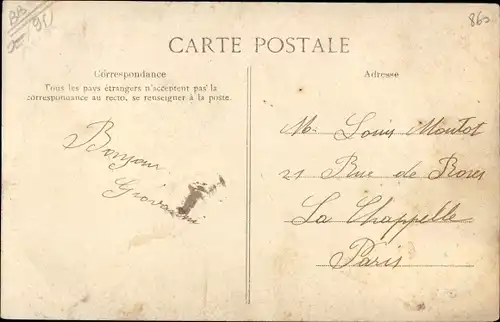 BB
90
860
CARTE POSTALE
Correspondance
Tous les pays étrangers n'acceptent pas la
correspondance au recto, se renseigner à la poste.
Bonjour
Giovanni
Adresse
Mr Louis Montot
21 Rue de Roses
La Chappelle
Paris